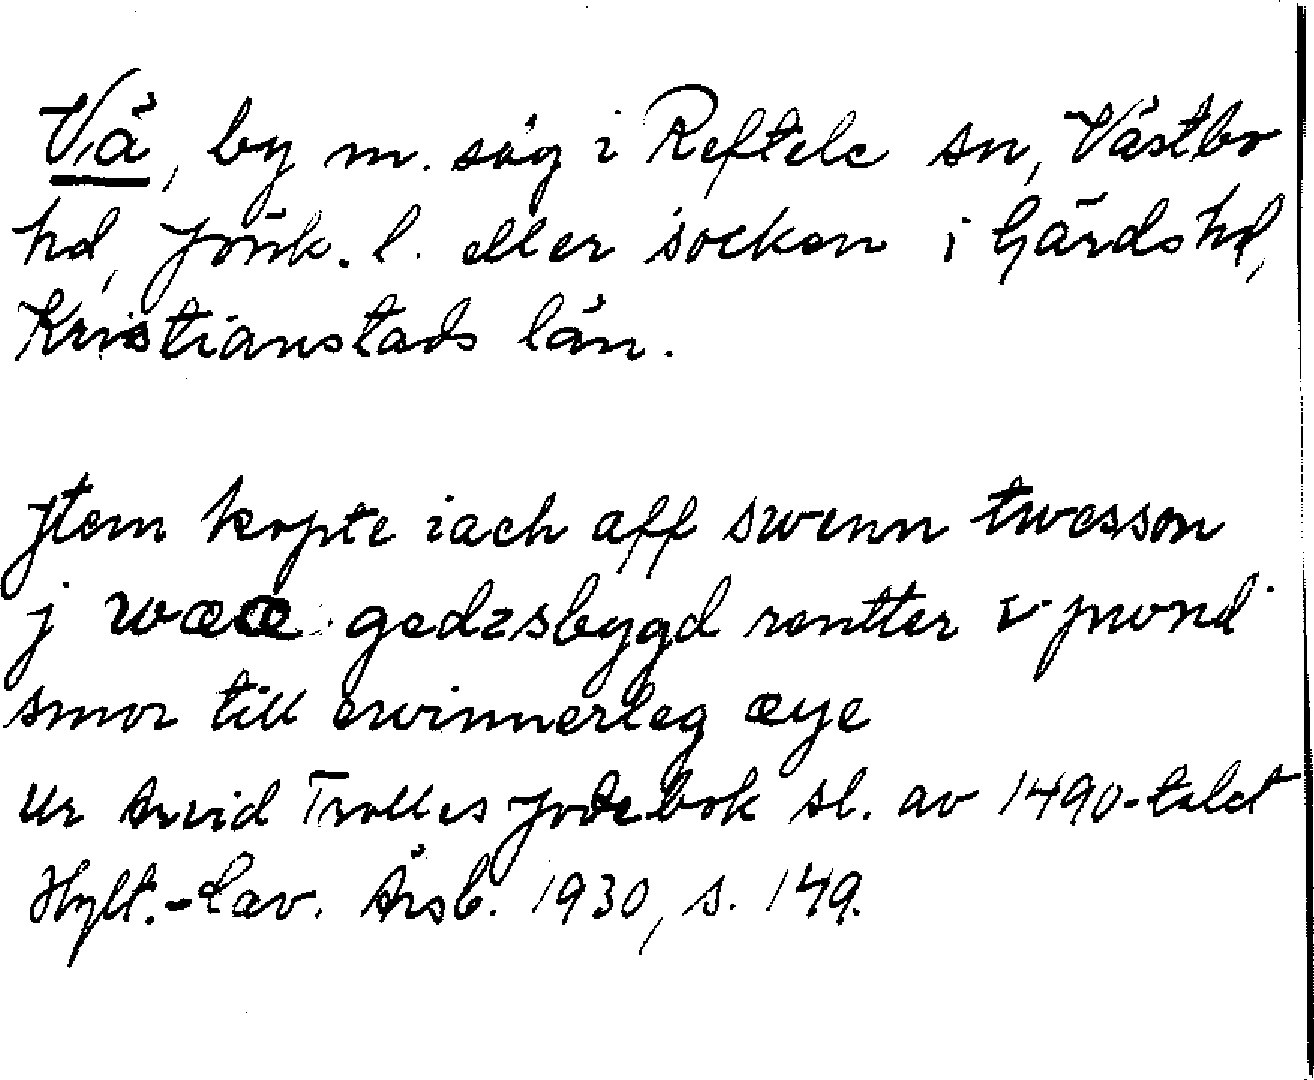 Vä, by m. säg i Reftele sn, Västbo
hd, Jönk. l. eller socken i Gärds hd,
Kristianstads län.
Jtem kopte iach aff swenn twesson
j wææ gedzsbygd rentter v pwnd
smor till ewinnerleg æye
Ur Arvid Trolles Jordebok sl. av 1490-talet
Hylt.-Cav. Årsb. 1930, s. 149.